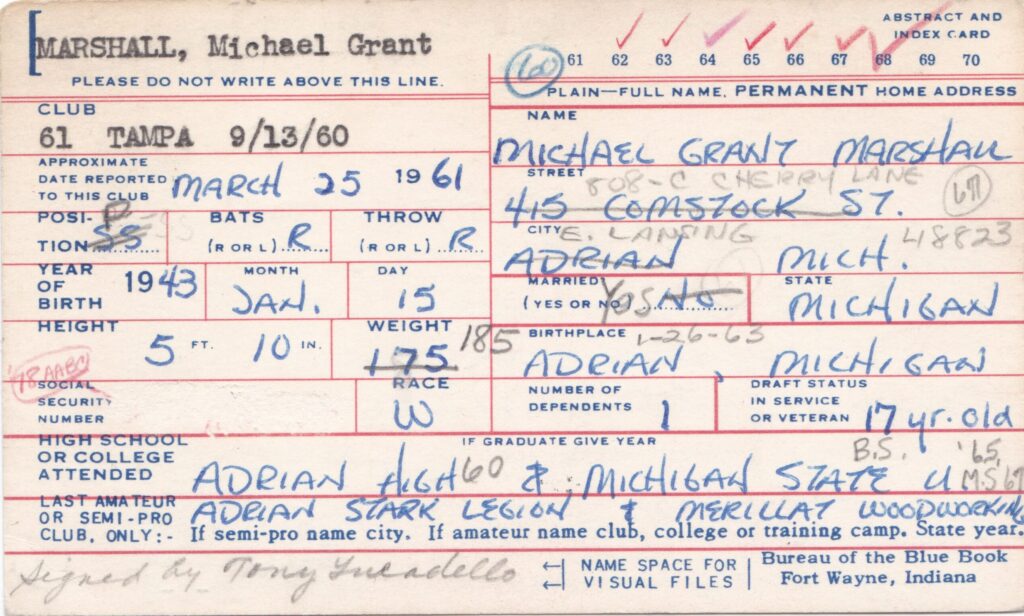 MARSHALL, Michael Grant
ABSTRACT AND
INDEX CARD
60 61 62 63 64 65 66 67 68 69 70
PLEASE DO NOT WRITE ABOVE THIS LINE.
PLAIN—FULL NAME, PERMANENT HOME ADDRESS
CLUB
61 TAMPA 9/13/60
NAME
MICHAEL GRANT MARSHALL
APPROXIMATE
DATE REPORTED
TO THIS CLUB MARCH 25 1961
STREET 808-C CHERRY LANE
415 COMSTOCK ST. 67
POSI-
TION SS P
BATS
(R OR L) R
THROW
(R OR L) R
CITY E. LANSING 48823
ADRIAN MICH.
YEAR
OF
BIRTH 1943
MONTH
JAN.
DAY
15
MARRIED
(YES OR NO) Yes No
1-26-63
STATE
MICHIGAN
HEIGHT
5 FT. 10 IN.
WEIGHT
175 185
BIRTHPLACE
ADRIAN, MICHIGAN
'78 AABC
SOCIAL
SECURITY
NUMBER
RACE
W
NUMBER OF
DEPENDENTS 1
DRAFT STATUS
IN SERVICE
OR VETERAN 17 yr. old
HIGH SCHOOL
OR COLLEGE
ATTENDED
IF GRADUATE GIVE YEAR
ADRIAN HIGH 60 & MICHIGAN STATE U
B.S. '65,
M.S '67
LAST AMATEUR
OR SEMI-PRO
CLUB, ONLY:-
ADRIAN STARK LEGION & MERILLAT WOODWORKING
If semi-pro name city. If amateur name club, college or training camp. State year.
Signed by Tony Lucadello
NAME SPACE FOR
VISUAL FILES
Bureau of the Blue Book
Fort Wayne, Indiana